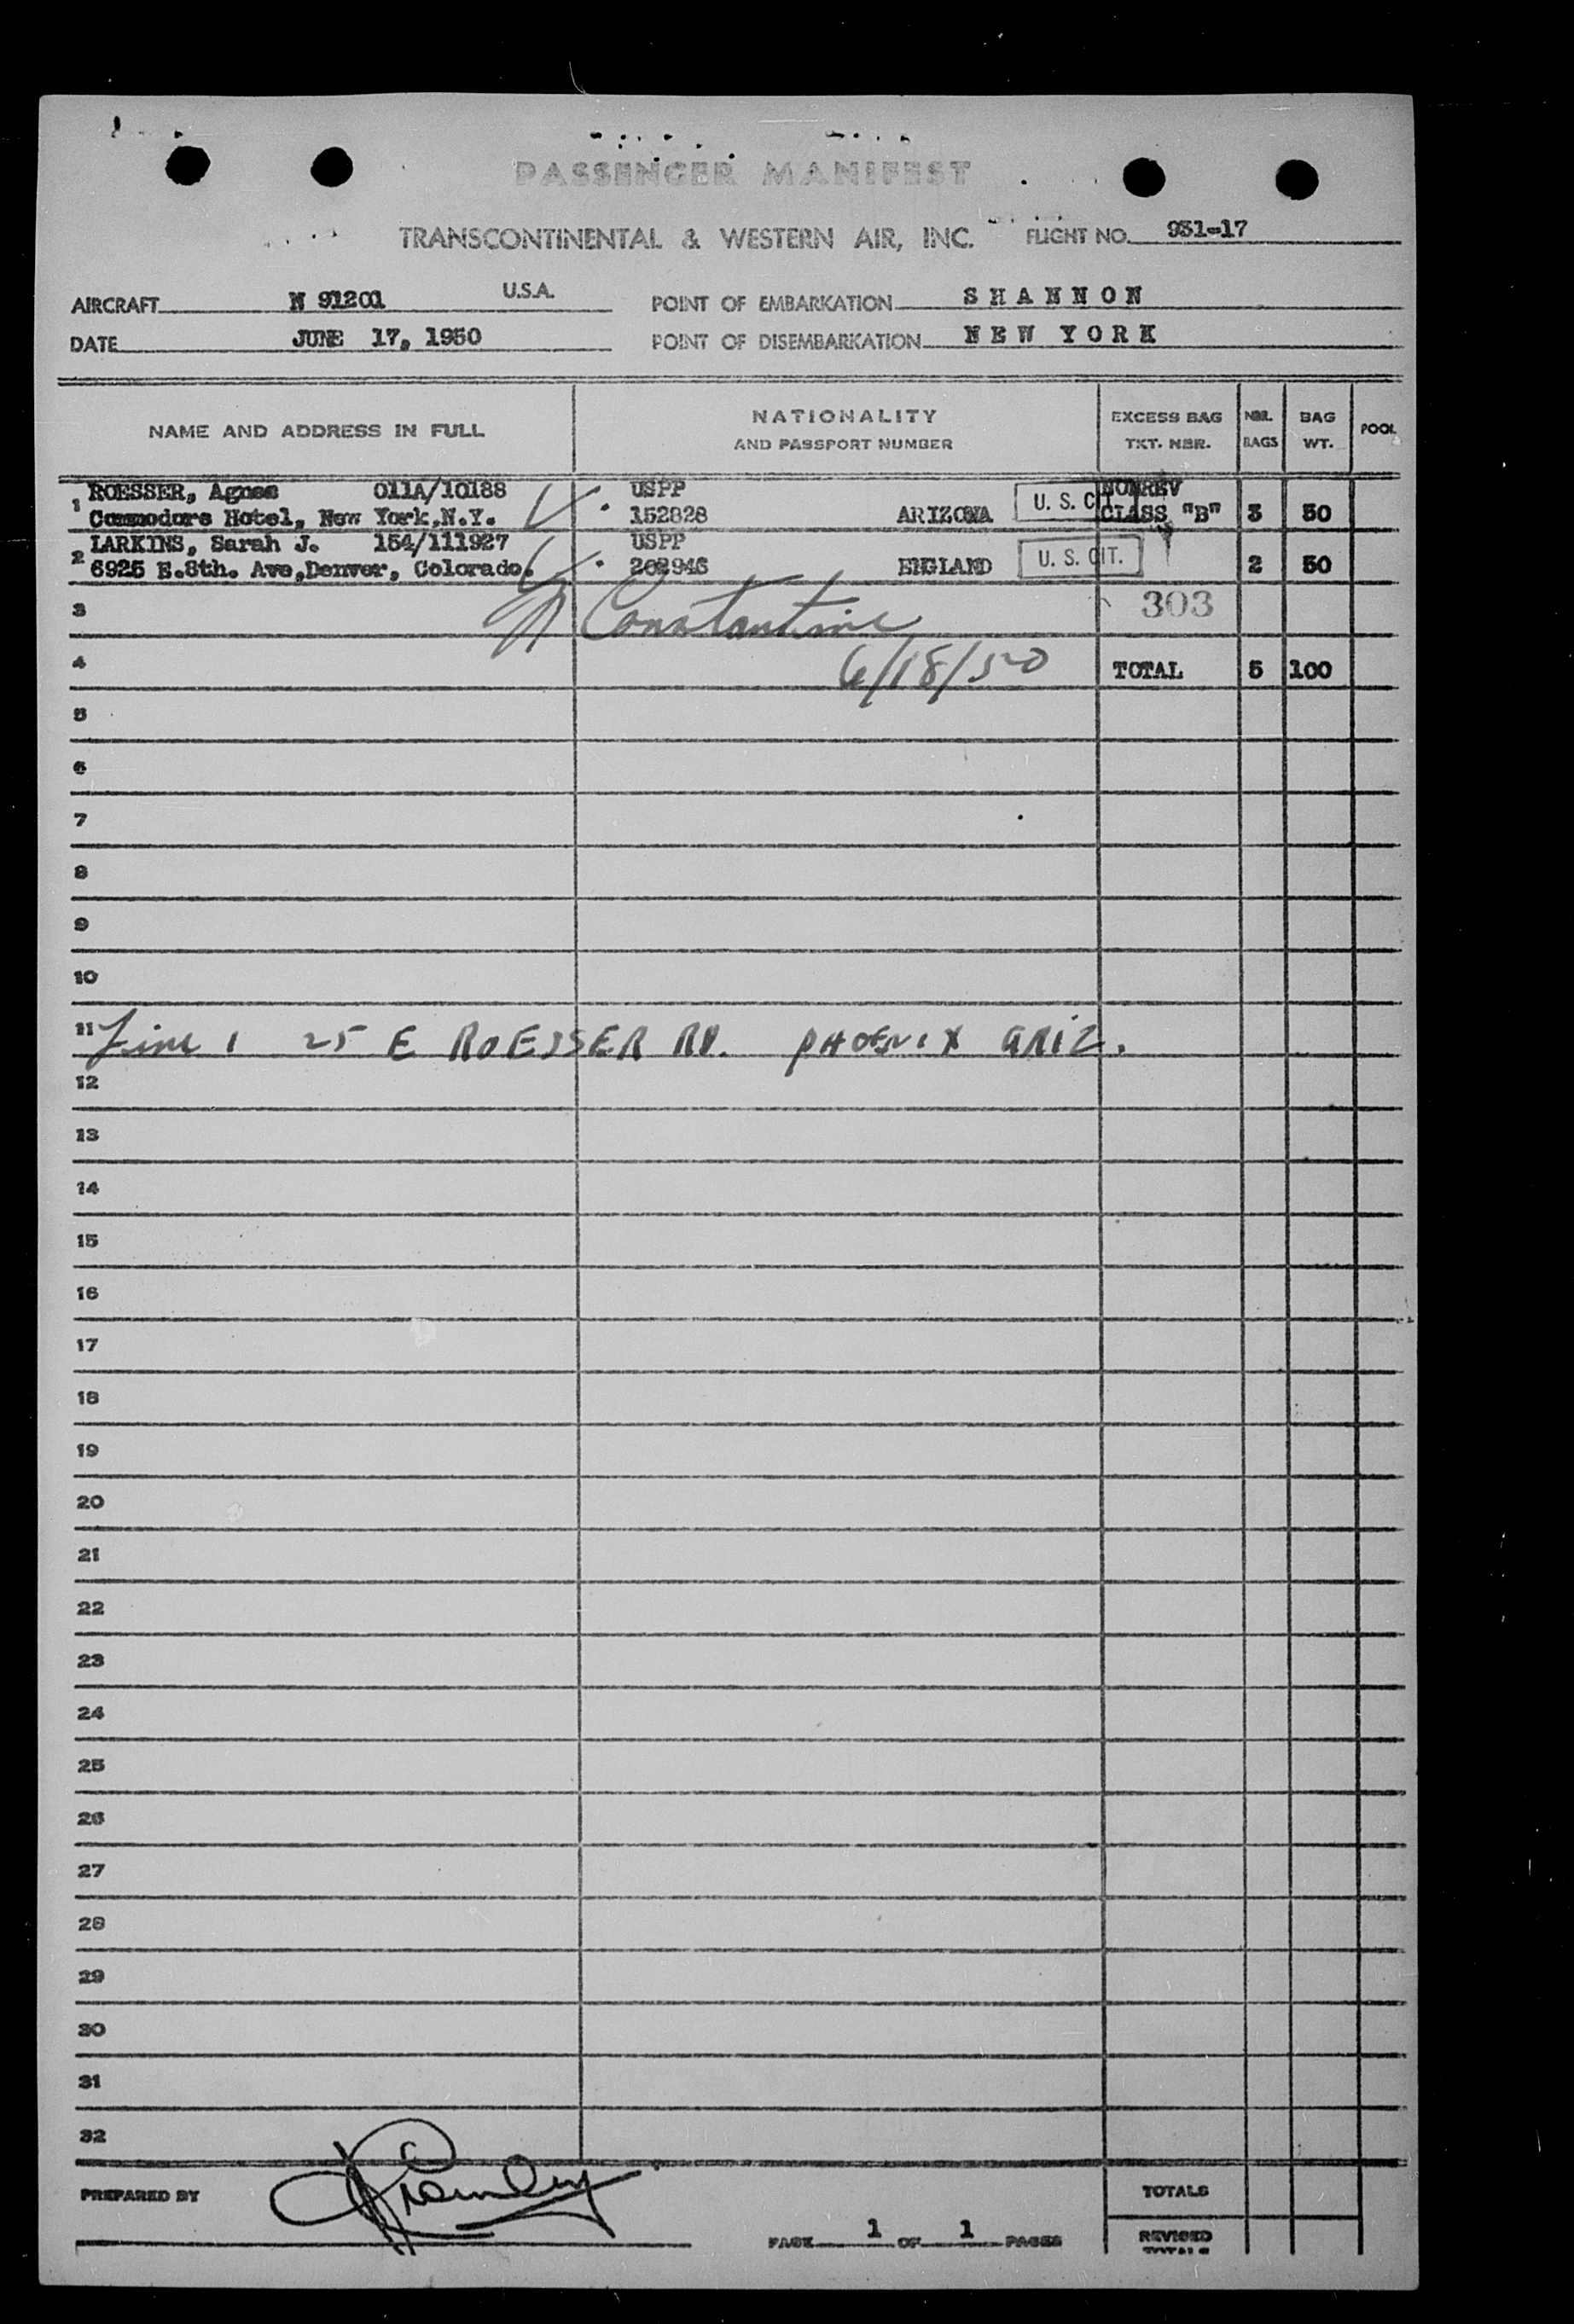 PASSENGER MANIFEST
TRANSCONTINENTAL & WESTERN AIR, INC. FLIGHT NO. 931-17
AIRCRAFT N 91201 U.S.A. POINT OF EMBARKATION SHANNON
DATE JUNE 17, 1950 POINT OF DISEMBARKATION NEW YORK
NAME AND ADDRESS IN FULL NATIONALITY AND PASSPORT NUMBER EXCESS BAG TKT. NBR. NBR. BAGS BAG WT. POOL
1 ROESSER, Agnes 011A/10188 USPP NONREV
Commodore Hotel, New York,N.Y. 152828 ARIZONA U. S. CIT. CLASS "B" 3 50
2 LARKINS, Sarah J. 154/111927 USPP
6925 E.8th. Ave,Denver, Colorado. 202946 ENGLAND U. S. CIT. 2 50
3 Constantine 303
4 6/18/50 TOTAL 5 100
5
6
7
8
9
10
11 Line 1 25 E ROESSER RD. PHOENIX ARIZ.
12
13
14
15
16
17
18
19
20
21
22
23
24
25
26
27
28
29
30
31
32
PREPARED BY TOTALS
PAGE 1 OF 1 PAGES REVISED TOTALS